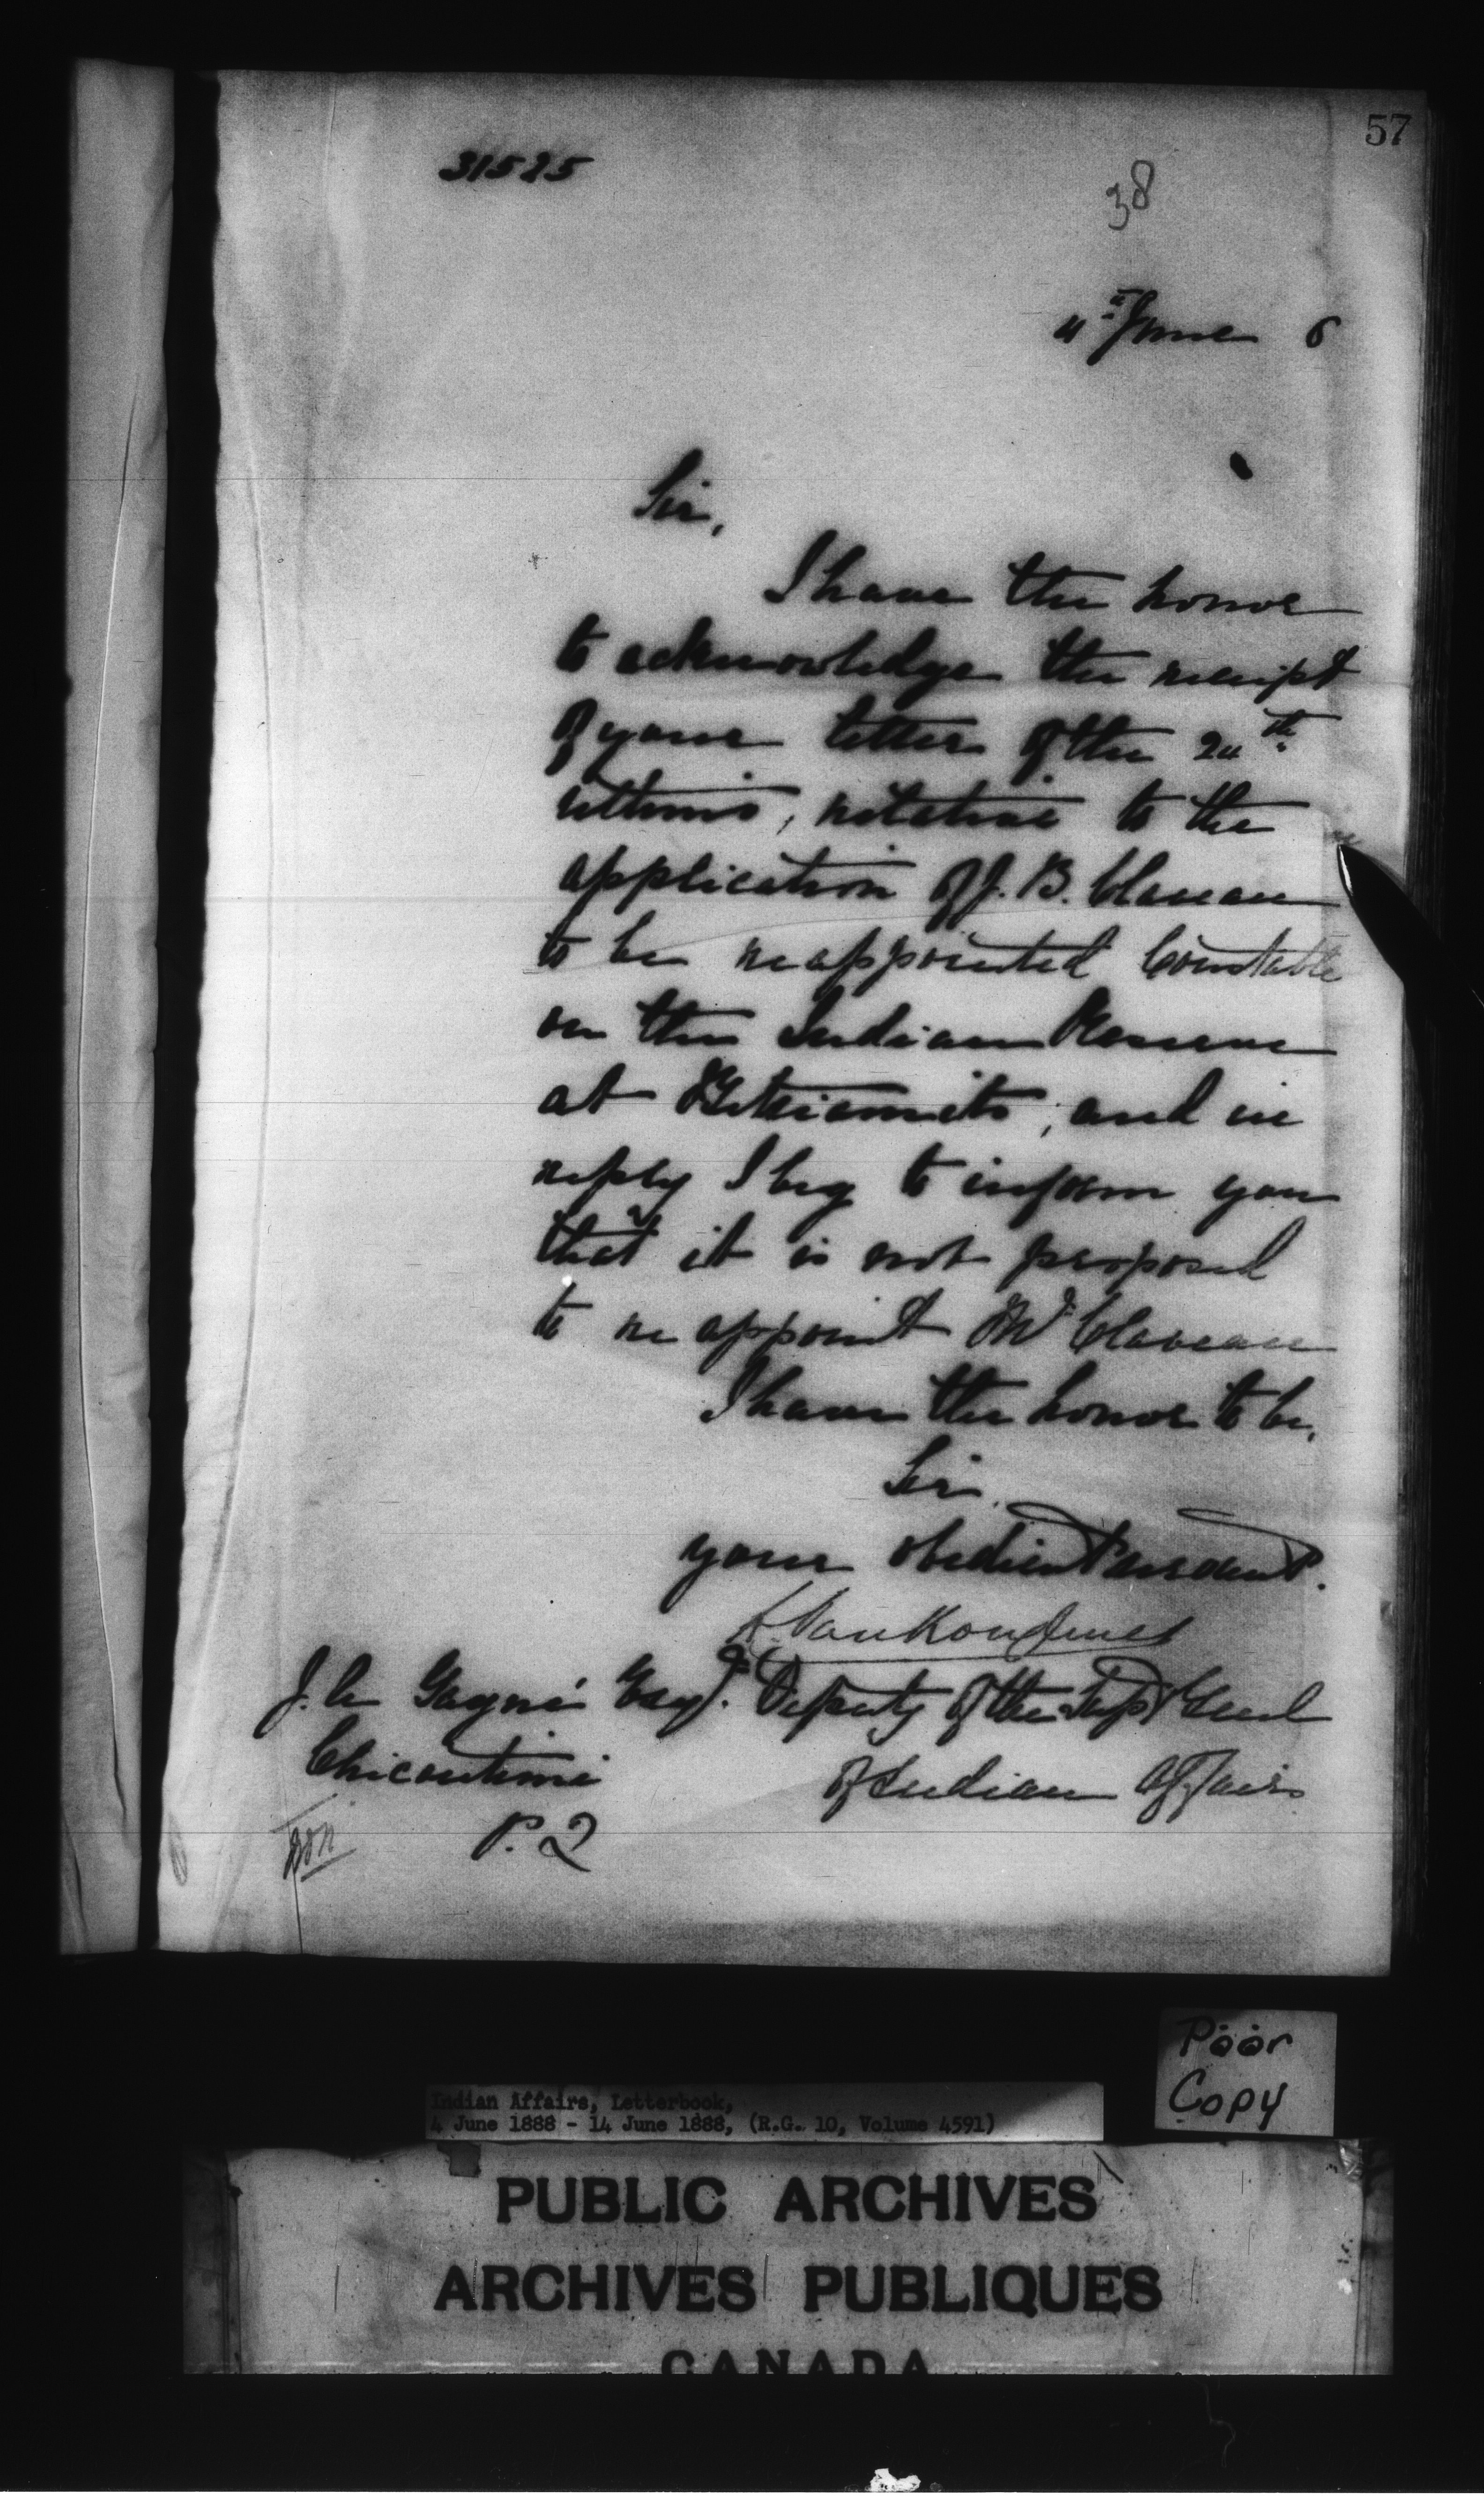 57
31525
38
4th June 8
Sir,
I have the honor
to acknowledge the receipt
of your letter of the 24th
ultimo, relative to the
application of J. B. Claveau
to be reappointed Constable
on the Indian Reserve
at Betsiamits, and in
reply I beg to inform you
that it is not proposed
to re appoint Mr Claveau
I have the honor to be,
Sir.
your obedient servant.
L. VanKoughnet
Deputy of the Supt Genl
of Indian Affairs
J. A. Gagné Esqr.
Chicoutimi
P. Q
Poor
Copy
Indian Affairs, Letterbook,
4 June 1888 - 14 June 1888, (R.G. 10, Volume 4591)
PUBLIC ARCHIVES
ARCHIVES PUBLIQUES
CANADA